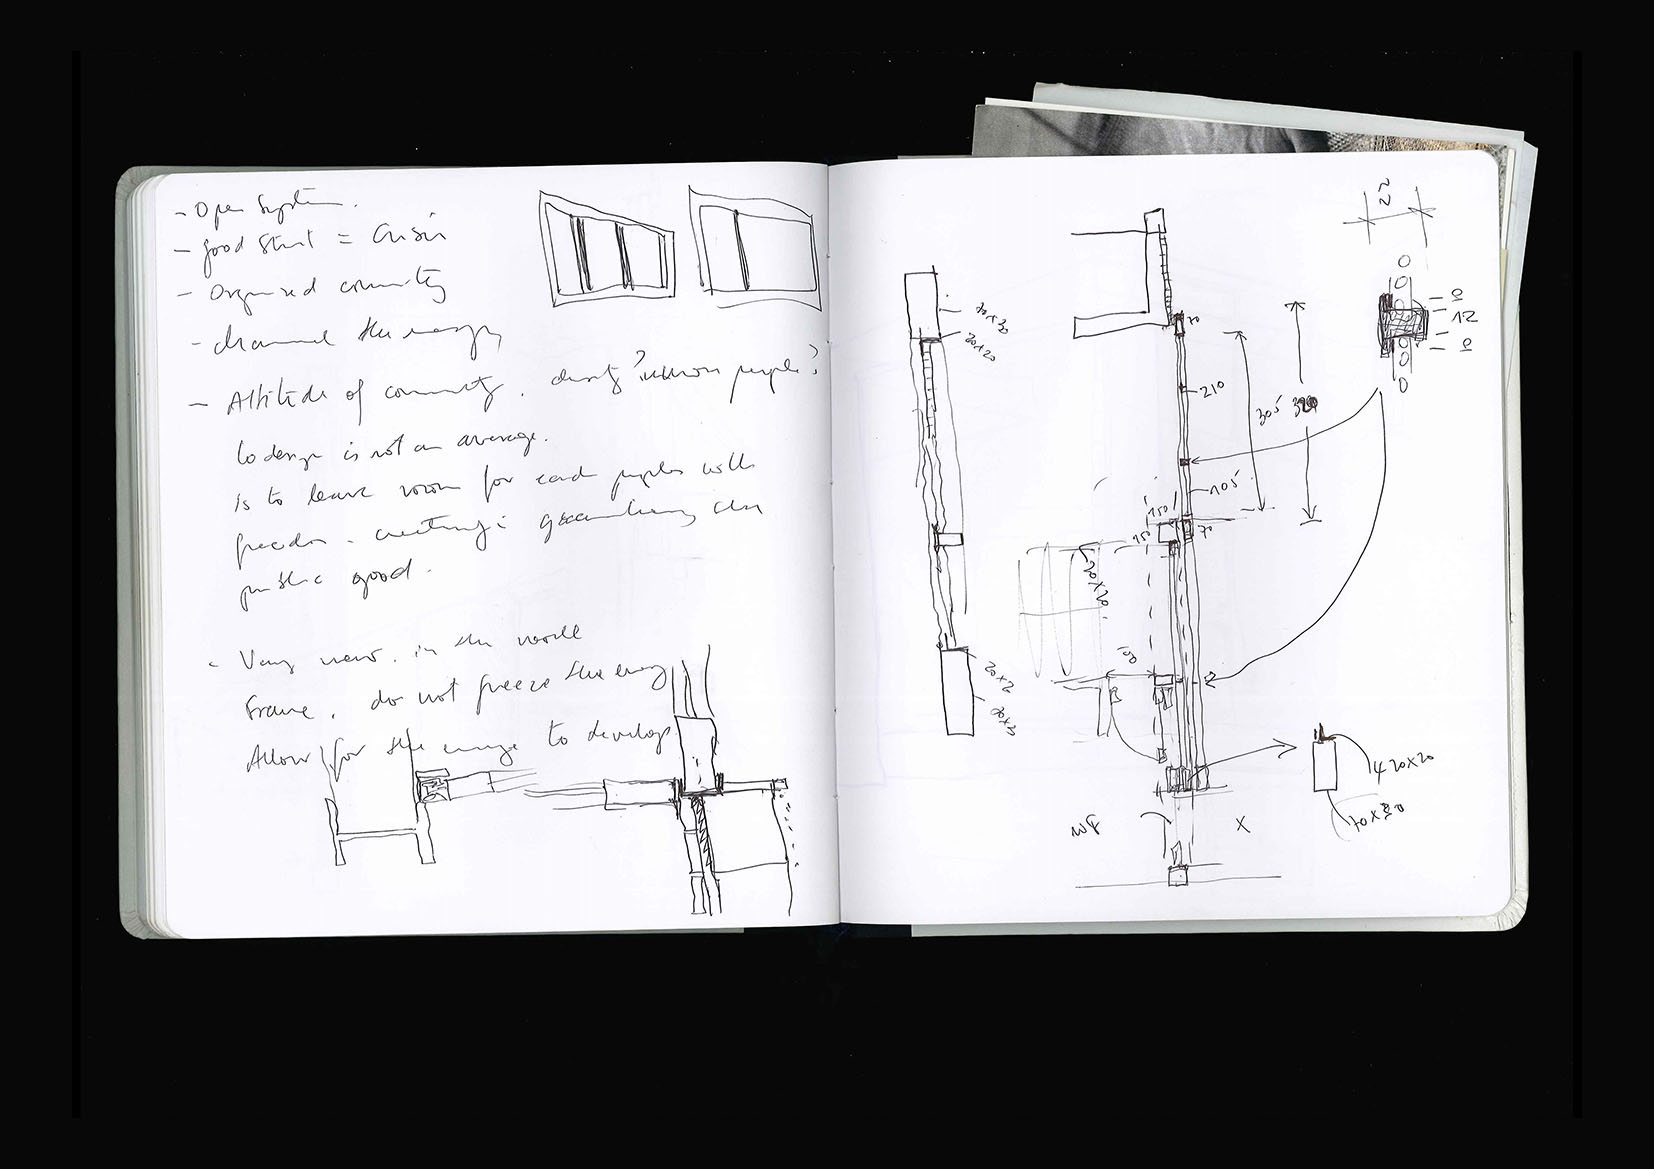 - Open System.
- good start = Crisis
- Organized community
- channel the energy
- Attitude of community. density? million people?
to design is not an average.
is to leave room for each peoples with
freedom. creating: guaranteeing the
public good.
- Very new. in the world
frame. do not freeze the energy
Allow for the energy to develop
70x30
20x20
70
210
305
105
150
150
70
20x20
20x2
12
420x20
X